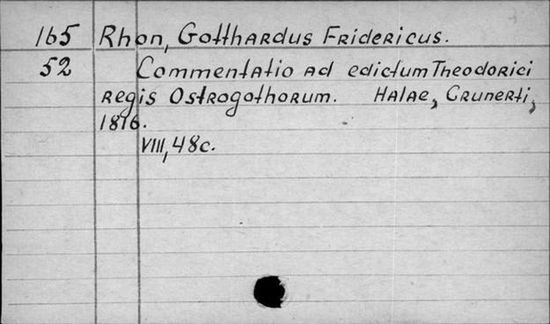 165 Rhon, Gotthardus Fridericus.
52 Commentatio ad edictum Theodorici
regis Ostrogothorum. Halae, Grunerti,
1816.
VIII, 48c.